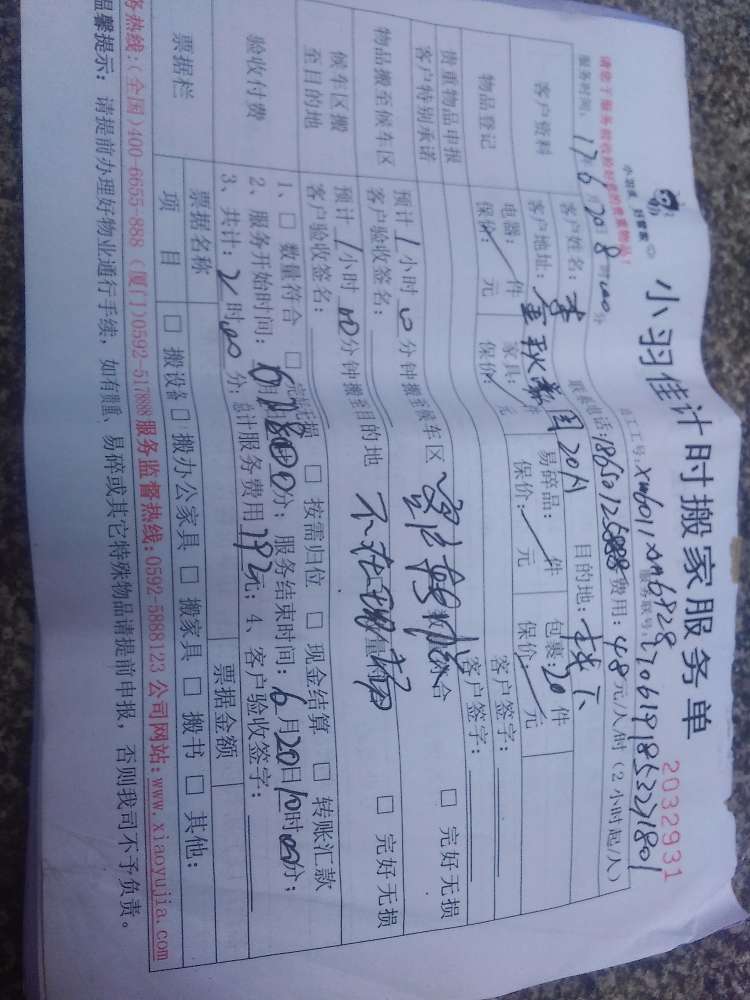 小羽佳计时搬家服务单
2032931
小羽佳 好管家
请您于服务前收拾好您的贵重物品!
员工工号:xm6011 xm6828 服务联号:
服务时间: 17年6月20日8时00分 费用:48元/人/时(2小时起/人)
客户资料 客户姓名:李 联系电话: 目的地:
客户地址:
物品登记 电器: 件 家具: 件 易碎品: 件 包裹:20件
保价: 元 保价: 元 保价: 元 保价: 元
贵重物品申报 客户签字:
客户特别承诺 客户签字:
物品搬至候车区 预计1小时0分钟搬至候车区 完好无损
客户验收签名:
候车区搬至目的地 预计1小时00分钟搬至目的地 完好无损
客户验收签名:
验收付费 1、□ 数量符合 □ 完好无损 □ 按需归位 □ 现金结算 □ 转账汇款
2、服务开始时间:6月20日8时00分;服务结束时间:6月20日10时00分;
3、共计:2时00分;总计服务费用192元;4、客户验收签字:
票据栏 票据名称 票据金额
项目 □ 搬设备 □ 搬办公家具 □ 搬家具 □ 搬书 □ 其他:
务热线:(全国)400-6655-888(厦门)0592-517888服务监督热线:0592-5888123 公司网站:www.xiaoyujia.com
温馨提示:请提前办理好物业通行手续,如有贵重、易碎或其它特殊物品请提前申报,否则我司不予负责。